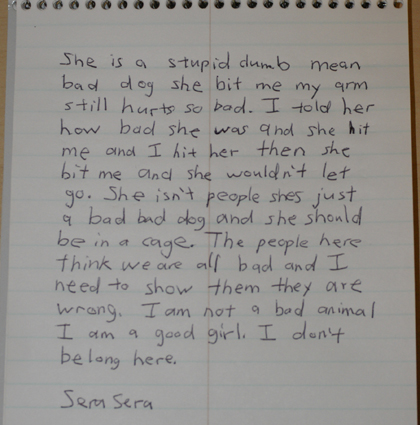 She is a stupid dumb mean
bad dog she bit me my arm
still hurts so bad. I told her
how bad she was and she hit
me and I hit her then she
bit me and she wouldn't let
go. She isn't people shes just
a bad bad dog and she should
be in a cage. The people here
think we are all bad and I
need to show them they are
wrong. I am not a bad animal
I am a good girl. I don't
belong here.
Sera Sera